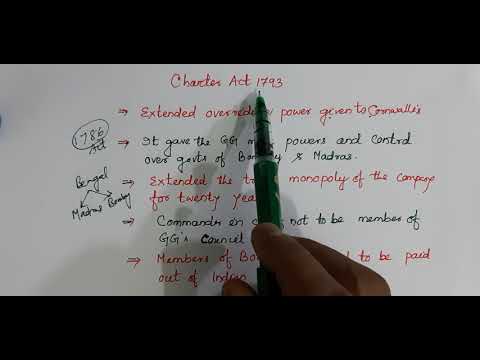 Charter Act 1793
⇒ Extended power given to Cornwallis
1786
Act
⇒ It gave the GG powers and control
over govts of & Madras.
Bengal
Madras Bombay
⇒ Extended the monopoly of the
for twenty
⇒ Commander in not to be member of
GG's Council
⇒ Members of to be paid
out of Indian